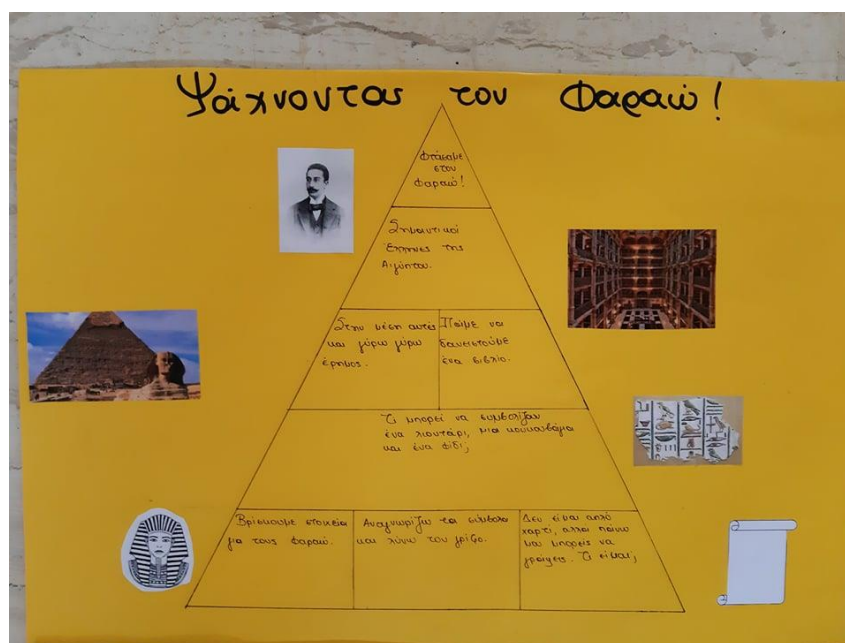 Ψάχνοντας του Φαραώ!
Φτάσαμε
στου
Φαραώ!
Σημαντικοί
Έλληνες της
Αιγύπτου.
Στην μέση αυτές
και γύρω γύρω
έρημος.
Πάμε να
δανειστούμε
ένα βιβλίο.
Τι μπορεί να συμβολίζαν
ένα λιοντάρι, μια κουκουβάγια
και ένα φίδι;
Βρίσκουμε στοιχεία
για τους Φαραώ.
Αναγνωρίζω τα σύμβολα
και λύνω τον γρίφο.
Δεν είναι απλό
χαρτί, αλλά πάνω
μπορείς να
γράψεις. Τι είναι;